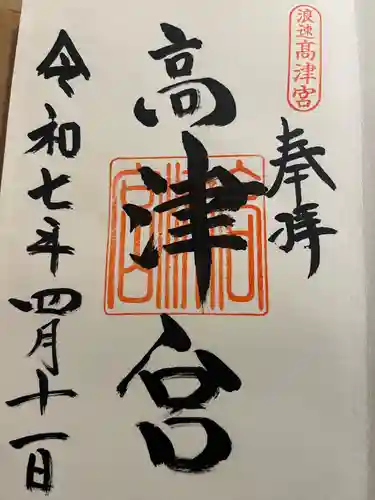 浪速高津宮
奉拝
高津宮
高津宮
令和七年四月十一日